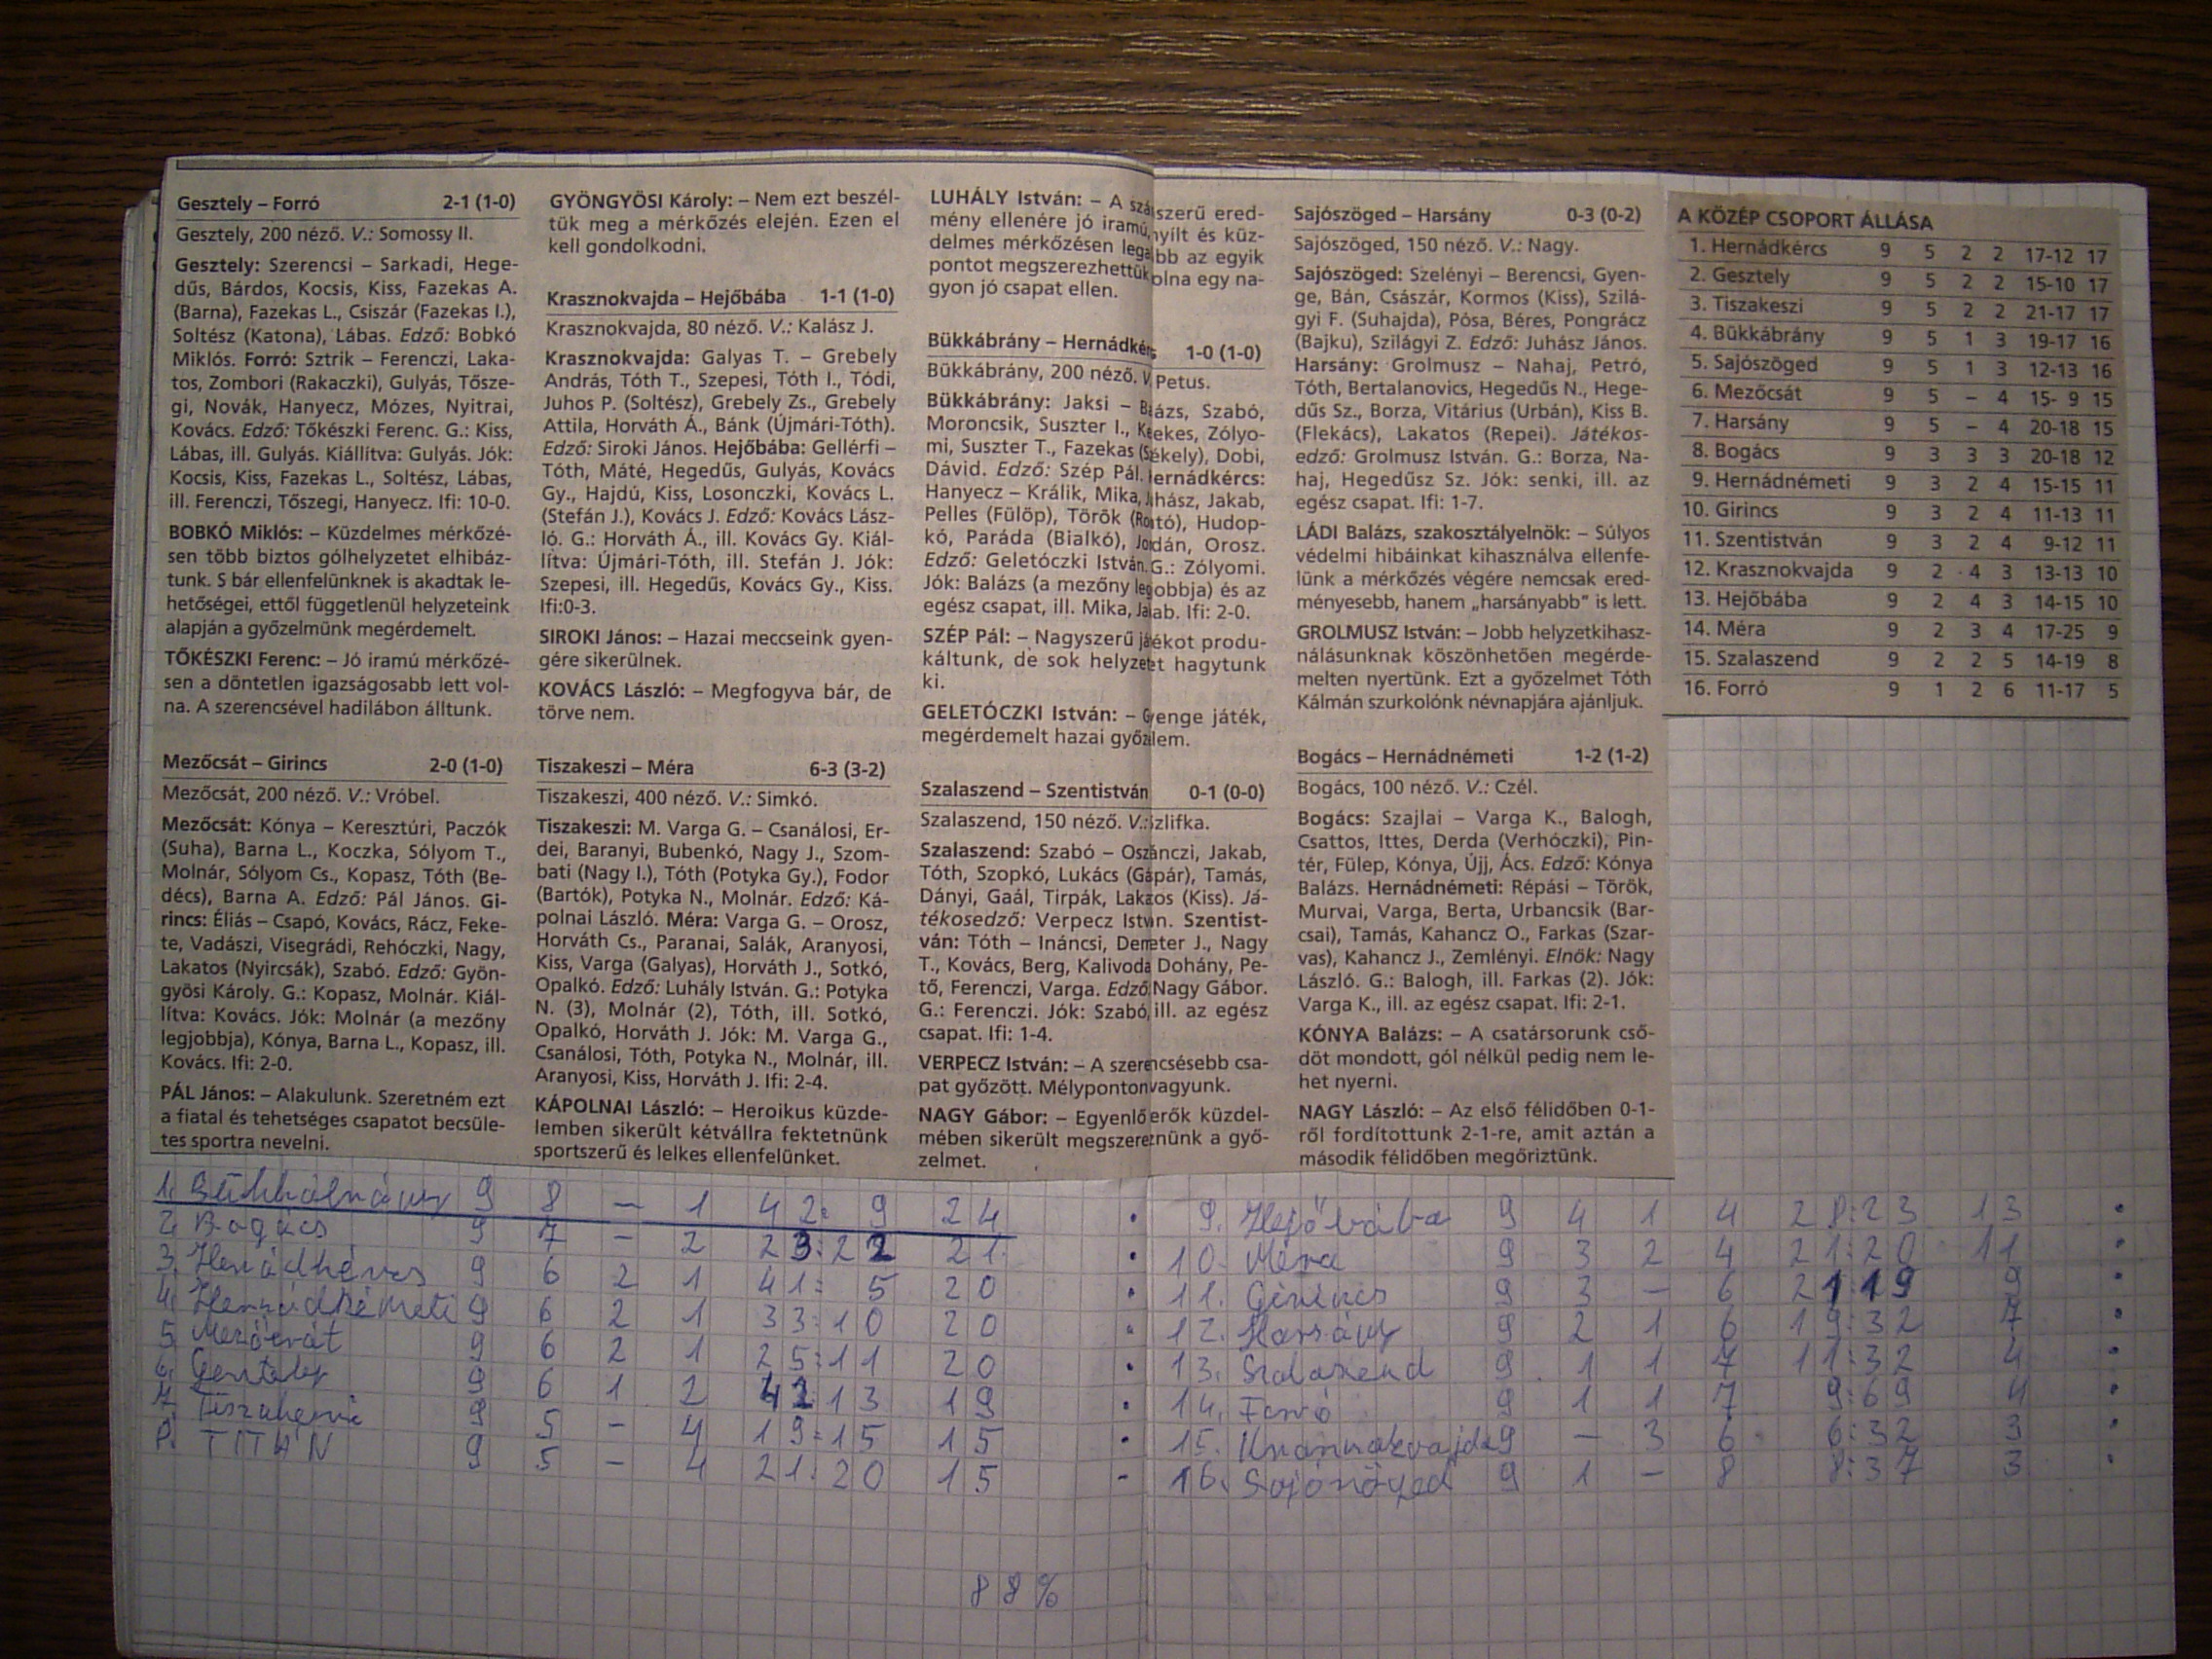 Gesztely – Forró 2-1 (1-0)
Gesztely, 200 néző. V.: Somossy II.
Gesztely: Szerencsi – Sarkadi, Hege-
dűs, Bárdos, Kocsis, Kiss, Fazekas A.
(Barna), Fazekas L., Csiszár (Fazekas I.),
Soltész (Katona), Lábas. Edző: Bobkó
Miklós. Forró: Sztrik – Ferenczi, Laka-
tos, Zombori (Rakaczki), Gulyás, Tősze-
gi, Novák, Hanyecz, Mózes, Nyitrai,
Kovács. Edző: Tőkészki Ferenc. G.: Kiss,
Lábas, ill. Gulyás. Kiállítva: Gulyás. Jók:
Kocsis, Kiss, Fazekas L., Soltész, Lábas,
ill. Ferenczi, Tőszegi, Hanyecz. Ifi: 10-0.
BOBKÓ Miklós: – Küzdelmes mérkőzé-
sen több biztos gólhelyzetet elhibáz-
tunk. S bár ellenfelünknek is akadtak le-
hetőségei, ettől függetlenül helyzeteink
alapján a győzelmünk megérdemelt.
TŐKÉSZKI Ferenc: – Jó iramú mérkőzé-
sen a döntetlen igazságosabb lett vol-
na. A szerencsével hadilábon álltunk.
Mezőcsát – Girincs 2-0 (1-0)
Mezőcsát, 200 néző. V.: Vróbel.
Mezőcsát: Kónya – Keresztúri, Paczók
(Suha), Barna L., Koczka, Sólyom T.,
Molnár, Sólyom Cs., Kopasz, Tóth (Be-
décs), Barna A. Edző: Pál János. Gi-
rincs: Éliás – Csapó, Kovács, Rácz, Feke-
te, Vadászi, Visegrádi, Rehóczki, Nagy,
Lakatos (Nyircsák), Szabó. Edző: Gyön-
gyösi Károly. G.: Kopasz, Molnár. Kiál-
lítva: Kovács. Jók: Molnár (a mezőny
legjobbja), Kónya, Barna L., Kopasz, ill.
Kovács. Ifi: 2-0.
PÁL János: – Alakulunk. Szeretném ezt
a fiatal és tehetséges csapatot becsüle-
tes sportra nevelni.
GYÖNGYÖSI Károly: – Nem ezt beszél-
tük meg a mérkőzés elején. Ezen el
kell gondolkodni.
Krasznokvajda – Hejőbába 1-1 (1-0)
Krasznokvajda, 80 néző. V.: Kalász J.
Krasznokvajda: Galyas T. – Grebely
András, Tóth T., Szepesi, Tóth I., Tódi,
Juhos P. (Soltész), Grebely Zs., Grebely
Attila, Horváth Á., Bánk (Újmári-Tóth).
Edző: Siroki János. Hejőbába: Gellérfi –
Tóth, Máté, Hegedűs, Gulyás, Kovács
Gy., Hajdú, Kiss, Losonczki, Kovács L.
(Stefán J.), Kovács J. Edző: Kovács Lász-
ló. G.: Horváth Á., ill. Kovács Gy. Kiál-
lítva: Újmári-Tóth, ill. Stefán J. Jók:
Szepesi, ill. Hegedűs, Kovács Gy., Kiss.
Ifi:0-3.
SIROKI János: – Hazai meccseink gyen-
gére sikerülnek.
KOVÁCS László: – Megfogyva bár, de
törve nem.
Tiszakeszi – Méra 6-3 (3-2)
Tiszakeszi, 400 néző. V.: Simkó.
Tiszakeszi: M. Varga G. – Csanálosi, Er-
dei, Baranyi, Bubenkó, Nagy J., Szom-
bati (Nagy I.), Tóth (Potyka Gy.), Fodor
(Bartók), Potyka N., Molnár. Edző: Ká-
polnai László. Méra: Varga G. – Orosz,
Horváth Cs., Paranai, Salák, Aranyosi,
Kiss, Varga (Galyas), Horváth J., Sotkó,
Opalkó. Edző: Luhály István. G.: Potyka
N. (3), Molnár (2), Tóth, ill. Sotkó,
Opalkó, Horváth J. Jók: M. Varga G.,
Csanálosi, Tóth, Potyka N., Molnár, ill.
Aranyosi, Kiss, Horváth J. Ifi: 2-4.
KÁPOLNAI László: – Heroikus küzde-
lemben sikerült kétvállra fektetnünk
sportszerű és lelkes ellenfelünket.
LUHÁLY István: – A szászerű ered-
mény ellenére jó iramú, nyílt és küz-
delmes mérkőzésen legalább az egyik
pontot megszerezhettük volna egy na-
gyon jó csapat ellen.
Bükkábrány – Hernádkércs 1-0 (1-0)
Bükkábrány, 200 néző. V.: Petus.
Bükkábrány: Jaksi – Balázs, Szabó,
Moroncsik, Suszter I., Kekes, Zólyo-
mi, Suszter T., Fazekas (Székely), Dobi,
Dávid. Edző: Szép Pál. Hernádkércs:
Hanyecz – Králik, Mika, Juhász, Jakab,
Pelles (Fülöp), Török (Rontó), Hudop-
kó, Paráda (Bialkó), Jordán, Orosz.
Edző: Geletóczki István. G.: Zólyomi.
Jók: Balázs (a mezőny legjobbja) és az
egész csapat, ill. Mika, Jakab. Ifi: 2-0.
SZÉP Pál: – Nagyszerű játékot produ-
káltunk, de sok helyzetet hagytunk
ki.
GELETÓCZKI István: – Gyenge játék,
megérdemelt hazai győzelem.
Szalaszend – Szentistván 0-1 (0-0)
Szalaszend, 150 néző. V.: Szlifka.
Szalaszend: Szabó – Oszánczi, Jakab,
Tóth, Szopkó, Lukács (Gápár), Tamás,
Dányi, Gaál, Tirpák, Lakatos (Kiss). Já-
tékosedző: Verpecz István. Szentist-
ván: Tóth – Ináncsi, Demeter J., Nagy
T., Kovács, Berg, Kalivoda, Dohány, Pe-
tő, Ferenczi, Varga. Edző: Nagy Gábor.
G.: Ferenczi. Jók: Szabó, ill. az egész
csapat. Ifi: 1-4.
VERPECZ István: – A szerencsésebb csa-
pat győzött. Mélyponton vagyunk.
NAGY Gábor: – Egyenlő erők küzdel-
mében sikerült megszereznünk a győ-
zelmet.
Sajószöged – Harsány 0-3 (0-2)
Sajószöged, 150 néző. V.: Nagy.
Sajószöged: Szelényi – Berencsi, Gyen-
ge, Bán, Császár, Kormos (Kiss), Szilá-
gyi F. (Suhajda), Pósa, Béres, Pongrácz
(Bajku), Szilágyi Z. Edző: Juhász János.
Harsány: Grolmusz – Nahaj, Petró,
Tóth, Bertalanovics, Hegedűs N., Hege-
dűs Sz., Borza, Vitárius (Urbán), Kiss B.
(Flekács), Lakatos (Repei). Játékos-
edző: Grolmusz István. G.: Borza, Na-
haj, Hegedűsz Sz. Jók: senki, ill. az
egész csapat. Ifi: 1-7.
LÁDI Balázs, szakosztályelnök: – Súlyos
védelmi hibáinkat kihasználva ellenfe-
lünk a mérkőzés végére nemcsak ered-
ményesebb, hanem „harsányabb” is lett.
GROLMUSZ István: – Jobb helyzetkihasz-
nálásunknak köszönhetően megérde-
melten nyertünk. Ezt a győzelmet Tóth
Kálmán szurkolónk névnapjára ajánljuk.
Bogács – Hernádnémeti 1-2 (1-2)
Bogács, 100 néző. V.: Czél.
Bogács: Szajlai – Varga K., Balogh,
Csattos, Ittes, Derda (Verhóczki), Pin-
tér, Fülep, Kónya, Újj, Ács. Edző: Kónya
Balázs. Hernádnémeti: Répási – Török,
Murvai, Varga, Berta, Urbancsik (Bar-
csai), Tamás, Kahancz O., Farkas (Szar-
vas), Kahancz J., Zemlényi. Elnök: Nagy
László. G.: Balogh, ill. Farkas (2). Jók:
Varga K., ill. az egész csapat. Ifi: 2-1.
KÓNYA Balázs: – A csatársorunk cső-
döt mondott, gól nélkül pedig nem le-
het nyerni.
NAGY László: – Az első félidőben 0-1-
ről fordítottunk 2-1-re, amit aztán a
második félidőben megőriztünk.
A KÖZÉP CSOPORT ÁLLÁSA
1. Hernádkércs 9 5 2 2 17-12 17
2. Gesztely 9 5 2 2 15-10 17
3. Tiszakeszi 9 5 2 2 21-17 17
4. Bükkábrány 9 5 1 3 19-17 16
5. Sajószöged 9 5 1 3 12-13 16
6. Mezőcsát 9 5 – 4 15- 9 15
7. Harsány 9 5 – 4 20-18 15
8. Bogács 9 3 3 3 20-18 12
9. Hernádnémeti 9 3 2 4 15-15 11
10. Girincs 9 3 2 4 11-13 11
11. Szentistván 9 3 2 4 9-12 11
12. Krasznokvajda 9 2 4 3 13-13 10
13. Hejőbába 9 2 4 3 14-15 10
14. Méra 9 2 3 4 17-25 9
15. Szalaszend 9 2 2 5 14-19 8
16. Forró 9 1 2 6 11-17 5
1. Bükkábrány 9 8 – 1 42: 9 24
2. Bogács 9 7 – 2 23:22 21
3. Hernádkércs 9 6 2 1 41: 5 20
4. Hernádnémeti 9 6 2 1 33:10 20
5. Mezőcsát 9 6 2 1 25:11 20
6. Gesztely 9 6 1 2 42:13 19
7. Tiszakeszi 9 5 – 4 19:15 15
8. TITÁN 9 5 – 4 21:20 15
9. Hejőbába 9 4 1 4 28:23 13
10. Méra 9 3 2 4 21:20 11
11. Girincs 9 3 – 6 21:19 9
12. Harsány 9 2 1 6 19:32 7
13. Szalaszend 9 1 1 7 11:32 4
14. Forró 9 1 1 7 9:69 4
15. Krasznokvajda 9 – 3 6 6:32 3
16. Sajószöged 9 1 – 8 8:37 3
88%